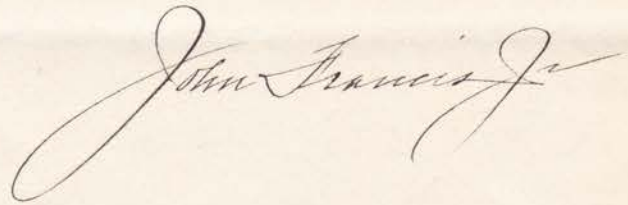 John Francis Jr